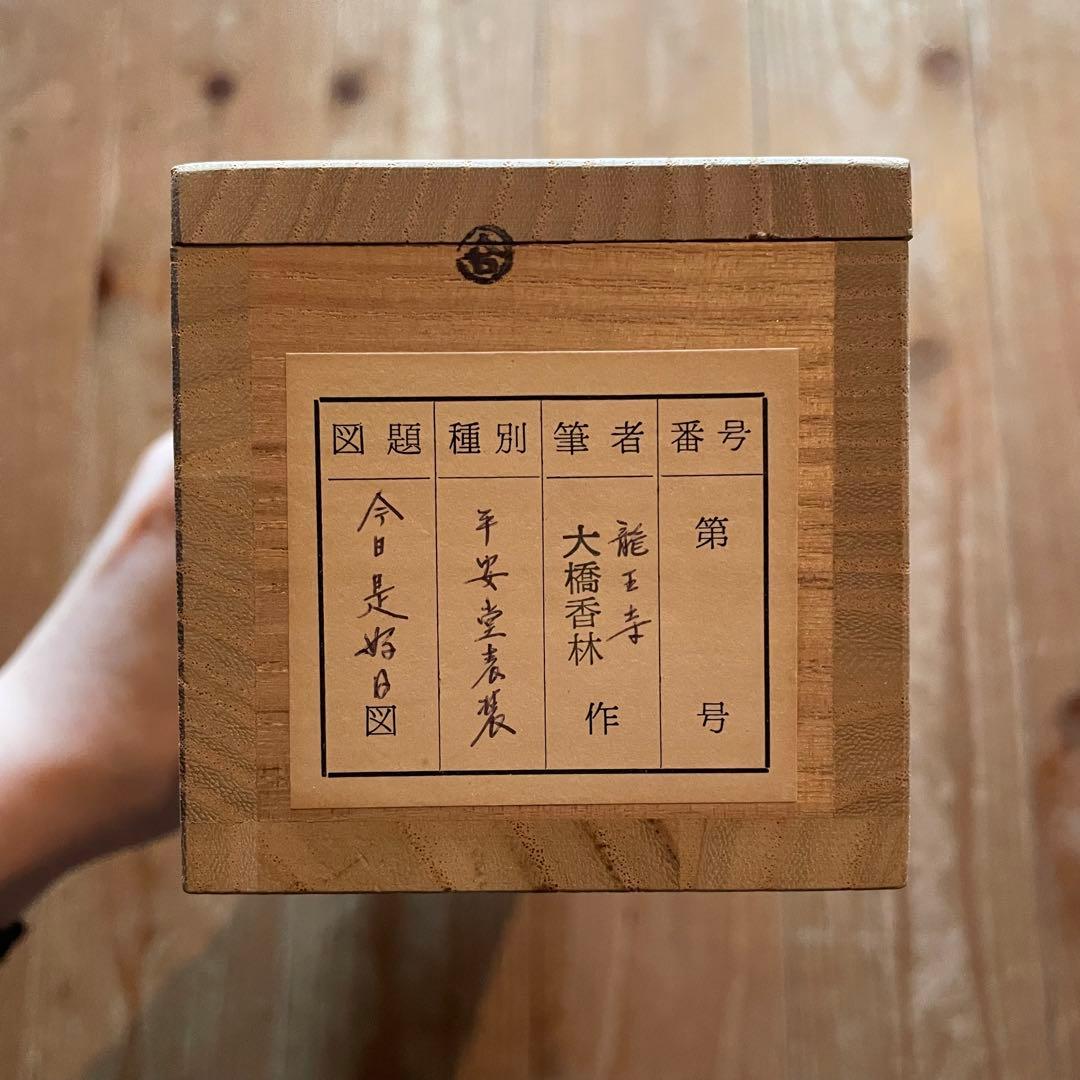 番号
第
号
筆者
龍王寺
大橋香林
作
種別
平安堂表装
図題
今日是好日
図